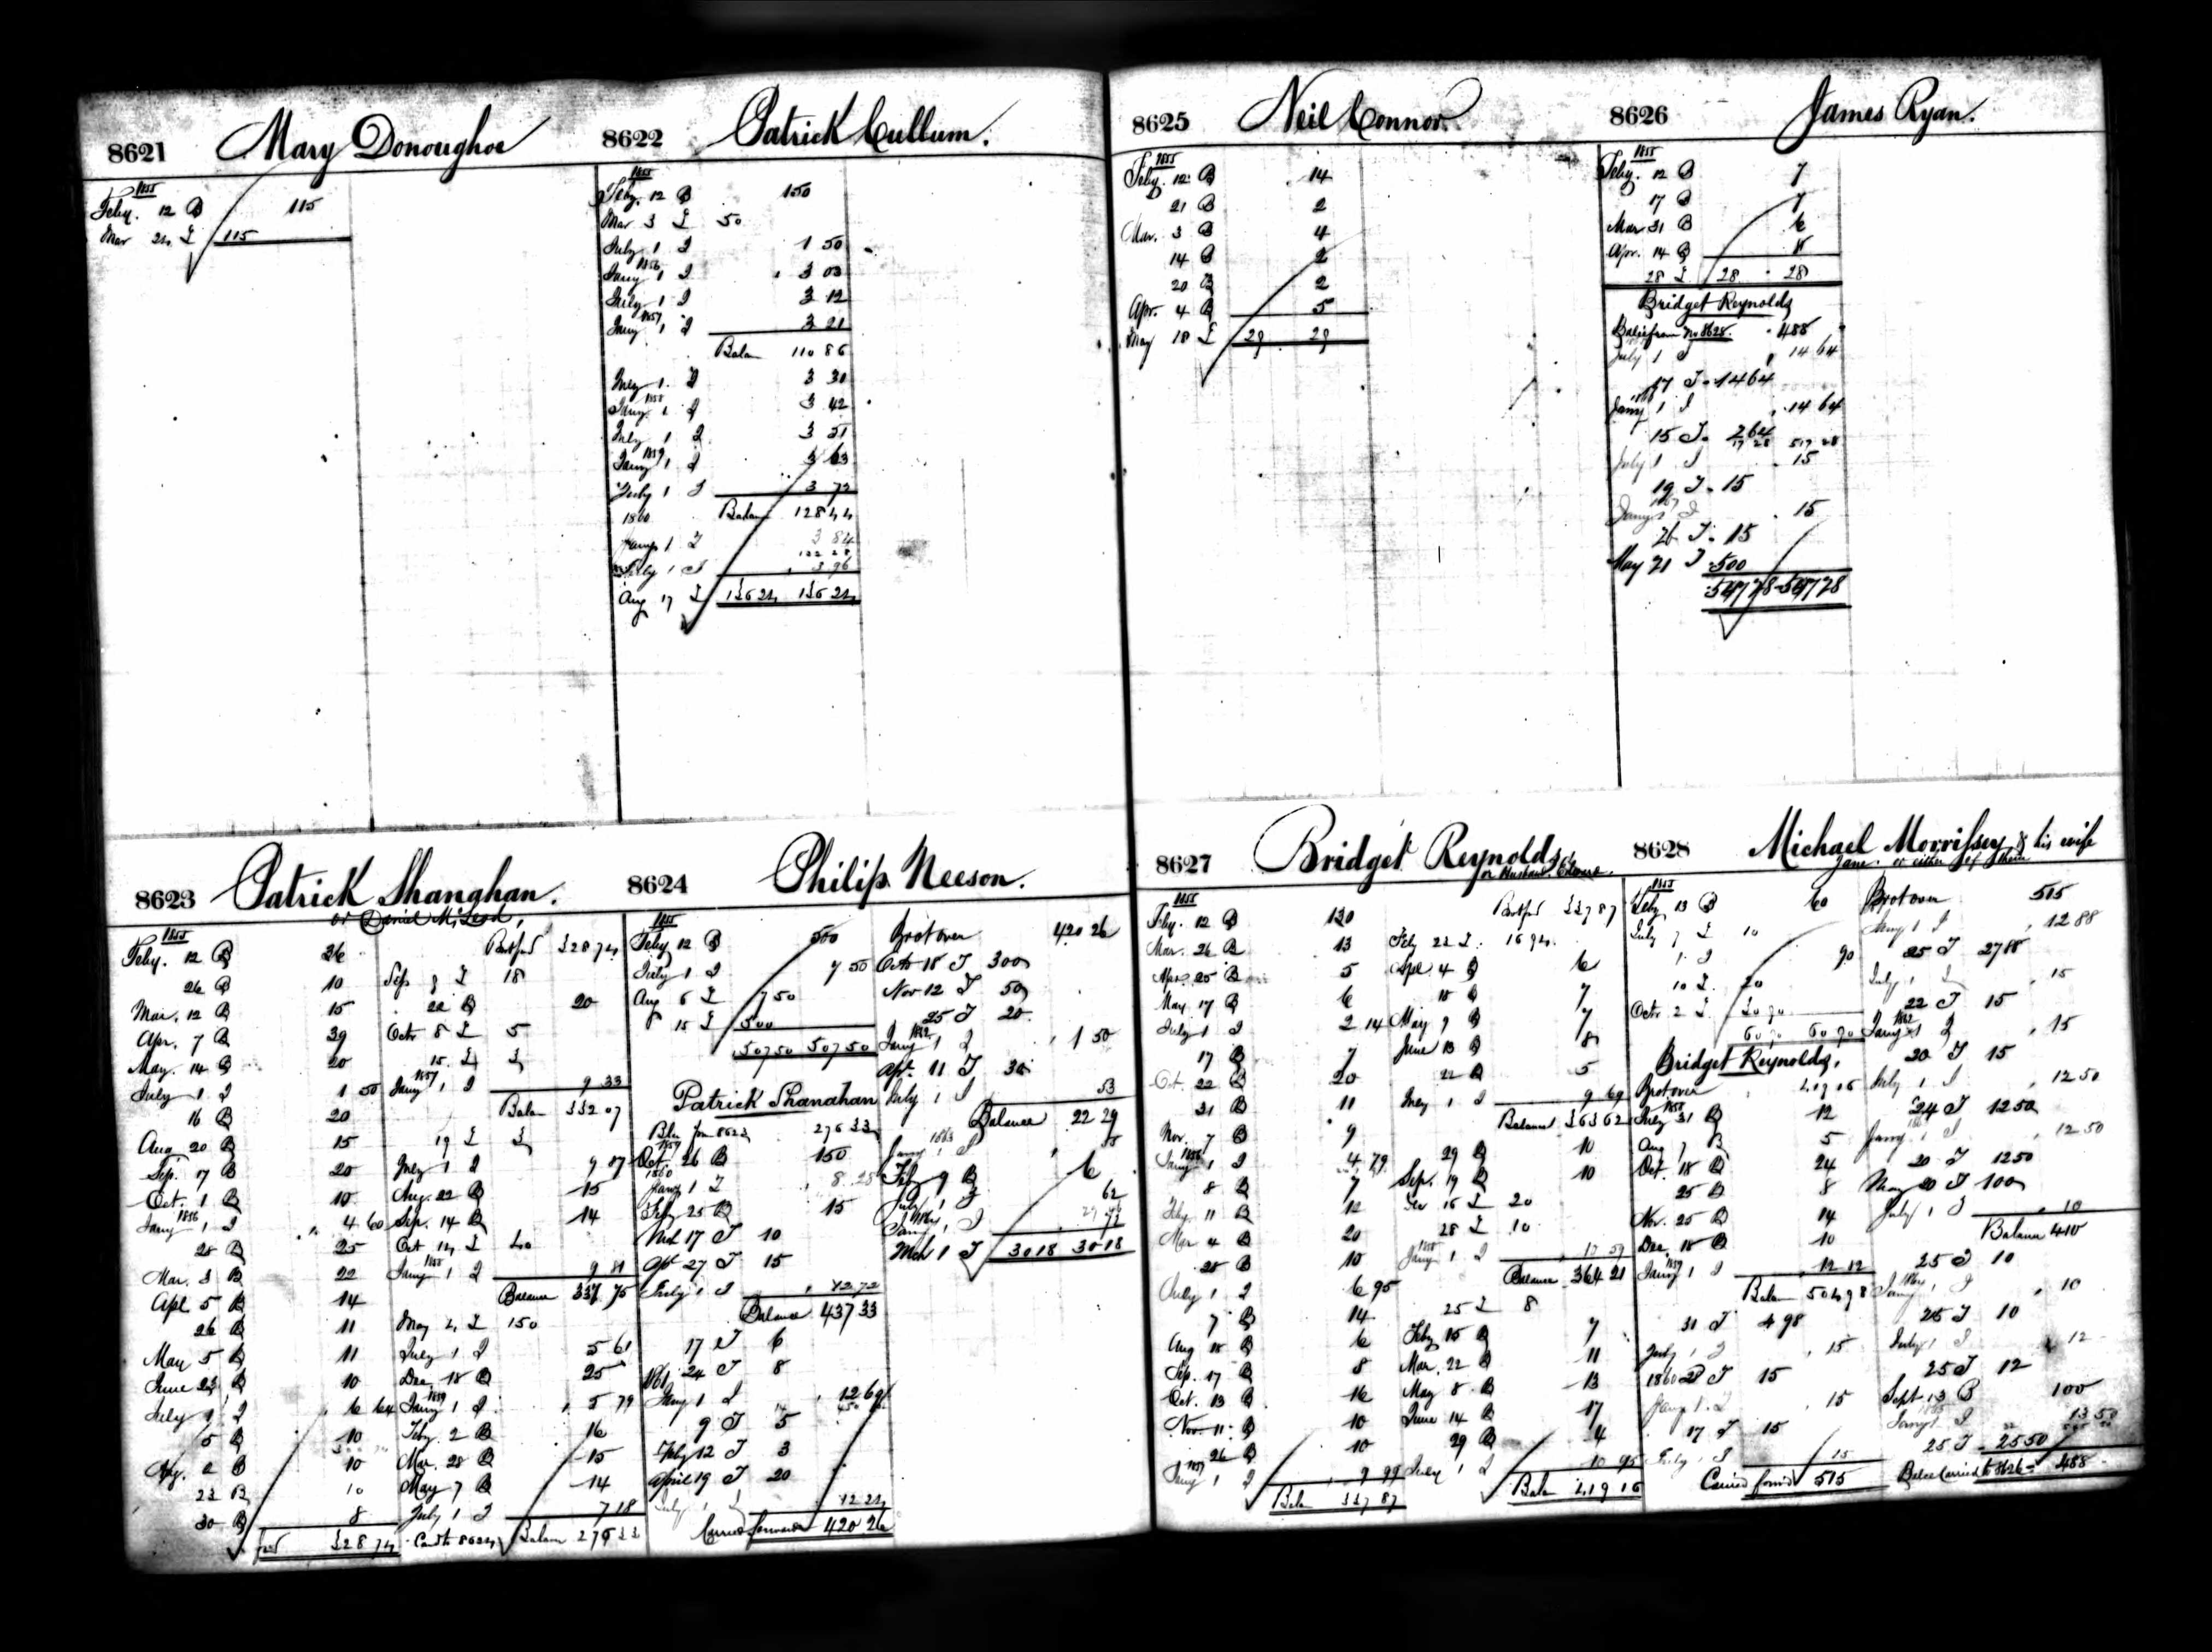 8621 Mary Donoughoe
1855
Feby. 12 B 115
Mar 24 L 115
8622 Patrick Cullum.
1855
Feby. 12 B 150
Mar 3 L 50
July 1 I 1 50
1856
Jany 1 I 3 00
July 1 I 3 12
1857
Jany 1 I 3 21
Balan 110 86
July 1 I 3 31
1858
Jany 1 I 3 42
July 1 I 3 51
1859
Jany 1 I 3 63
July 1 I 3 72
1860 Balance 128 44
Jany 1 I 3 84
July 1 I 3 96
Aug 17 L 136 24 136 24
8623 Patrick Shanahan.
or Daniel McLeod,
1855
Feby. 12 B 36
26 B 10
Mar. 12 B 15
Apr. 7 B 39
May 14 B 20
July 1 I 1 50
16 B 20
Aug 20 B 15
Sep. 17 B 20
Oct. 1 B 10
1856
Jany 1 I 4 60
28 B 25
Mar. 3 B 22
Apl 5 B 14
26 B 11
May 5 B 11
June 23 B 10
July 1 I 6 64
5 B 10
Aug. 2 B 10
23 B 10
30 B 8
328 74
328 74
Sep 8 L 18
22 B 20
Octr 8 L 5
15 L 3
1857
Jany 1 I 9 33
Balan 332 07
19 L 3
July 1 I 9 87
Aug. 22 B 15
Sep. 14 B 14
Oct 14 L 40
1858
Jany 1 I 9 81
Balance 337 75
May 4 L 150
July 1 I 5 61
Dec. 18 B 25
1859
Jany 1 I 5 79
Feby. 2 B 16
Mar. 28 B 15
May 7 B 14
July 1 I 7 18
Card to 8624 Balan 276 33
8624 Philip Neeson.
1855
Feby 12 B 500
July 1 I 7 50
Aug 6 L 7 50
15 L 500
507 50 507 50
Patrick Shanahan
Bln from 8623 276 33
1859
Oct 26 B 150
1860
Jany 1 I 8 28
Feb 25 B 15
Mch 17 T 10
Apl 27 T 15
July 1 I 12 72
Balance 437 33
17 T 6
24 T 8
1861
Jany 1 I 12 69
9 T 5
Feby 12 T 3
April 19 T 20
July 1 I 12 24
Carried forward 420 26
Brot over 420 26
Octr 18 T 300
Nov 12 T 50
25 T 20
1862
Jany 1 I 1 50
Apl. 11 T 30
July 1 I 53
Balance 22 29
1863
Jany 1 I
Feb 9 B 6
July 1 I 62
1864
Jany 1 I
Mch 1 T 30 18 30 18
8625 Neil Connor.
1855
Feby. 12 B 14
21 B 2
Mar. 3 B 4
14 B 2
20 B 2
Apr. 4 B 5
May 18 L 29 29
8626 James Ryan.
1855
Feby. 12 B 7
17 B 7
Mar 31 B 6
Apr. 14 B 8
28 L 28 28
Bridget Reynolds
Balce from No 8628. 488
July 1 I 14 64
17 T 14 64
Jany 1 I 14 64
15 T 2 64
17 28 517 28
July 1 I 15
19 T 15
1867
Jany 1 I 15
26 T 15
May 21 T 500
547 28 547 28
8627 Bridget Reynolds,
or Husband Edward.
1855
Feby. 12 B 130
Mar. 26 B 13
Apr. 25 B 5
May. 17 B 6
July 1 I 2 14
17 B 7
Oct. 22 B 20
31 B 11
Nov. 7 B 9
1856
Jany 1 I 4 79
8 B 7
Feby. 11 B 12
Mar 4 B 20
28 B 10
July 1 I 6 95
7 B 14
Aug 18 B 6
Sep. 17 B 8
Oct. 13 B 16
Nov 11 B 10
26 B 10
1857
Jany 1 I 9 99
Balan 337 87
337 87
Feby 22 L 16 94
Apl. 4 B 6
18 B 7
May 9 B 7
June 13 B 8
22 B 5
July 1 I 9 69
Balance 363 62
29 B 10
Sep. 19 B 10
16 L 20
28 L 10
1858
Jany 1 I 10 59
Balance 364 21
25 L 8
Feby 15 B 7
Mar. 22 B 11
May 8 B 13
June 14 B 17
29 B 4
July 1 I 10 95
Balan 419 16
8628 Michael Morrissey, & his wife
Jane. or either of them
1855
Feby. 13 B 60
July 7 L 10
1 I 90
10 L 20
Octr. 2 L 30 90
60 90 60 90
Bridget Reynolds,
Brot over 419 16
1858
July 31 B 12
Aug 7 B 5
Oct. 18 B 24
25 B 8
Nov. 25 B 14
Dec. 18 B 10
1859
Jany 1 I 12 12
Balan 504 98
31 T 4 98
July 1 I 15
1860 28 T 15
Jany 1 I 15
17 T 15
July 1 I 15
Carried forwd 515
Brot over 515
Jany 1 I 12 88
25 T 27 88
July 1 I 15
22 T 15
1862
Jany 1 I 15
20 T 15
July 1 I 12 50
24 T 12 50
Jany 1 I 12 50
20 T 12 50
May 20 T 100
July 1 I 10
Balance 410
25 T 10
1864
Jany 1 I 10
25 T 10
July 1 I 12
25 T 12
Sept 13 B 100
1865
Jany 1 I 13 50
25 T 25 50
Balce Carried to 8626 488